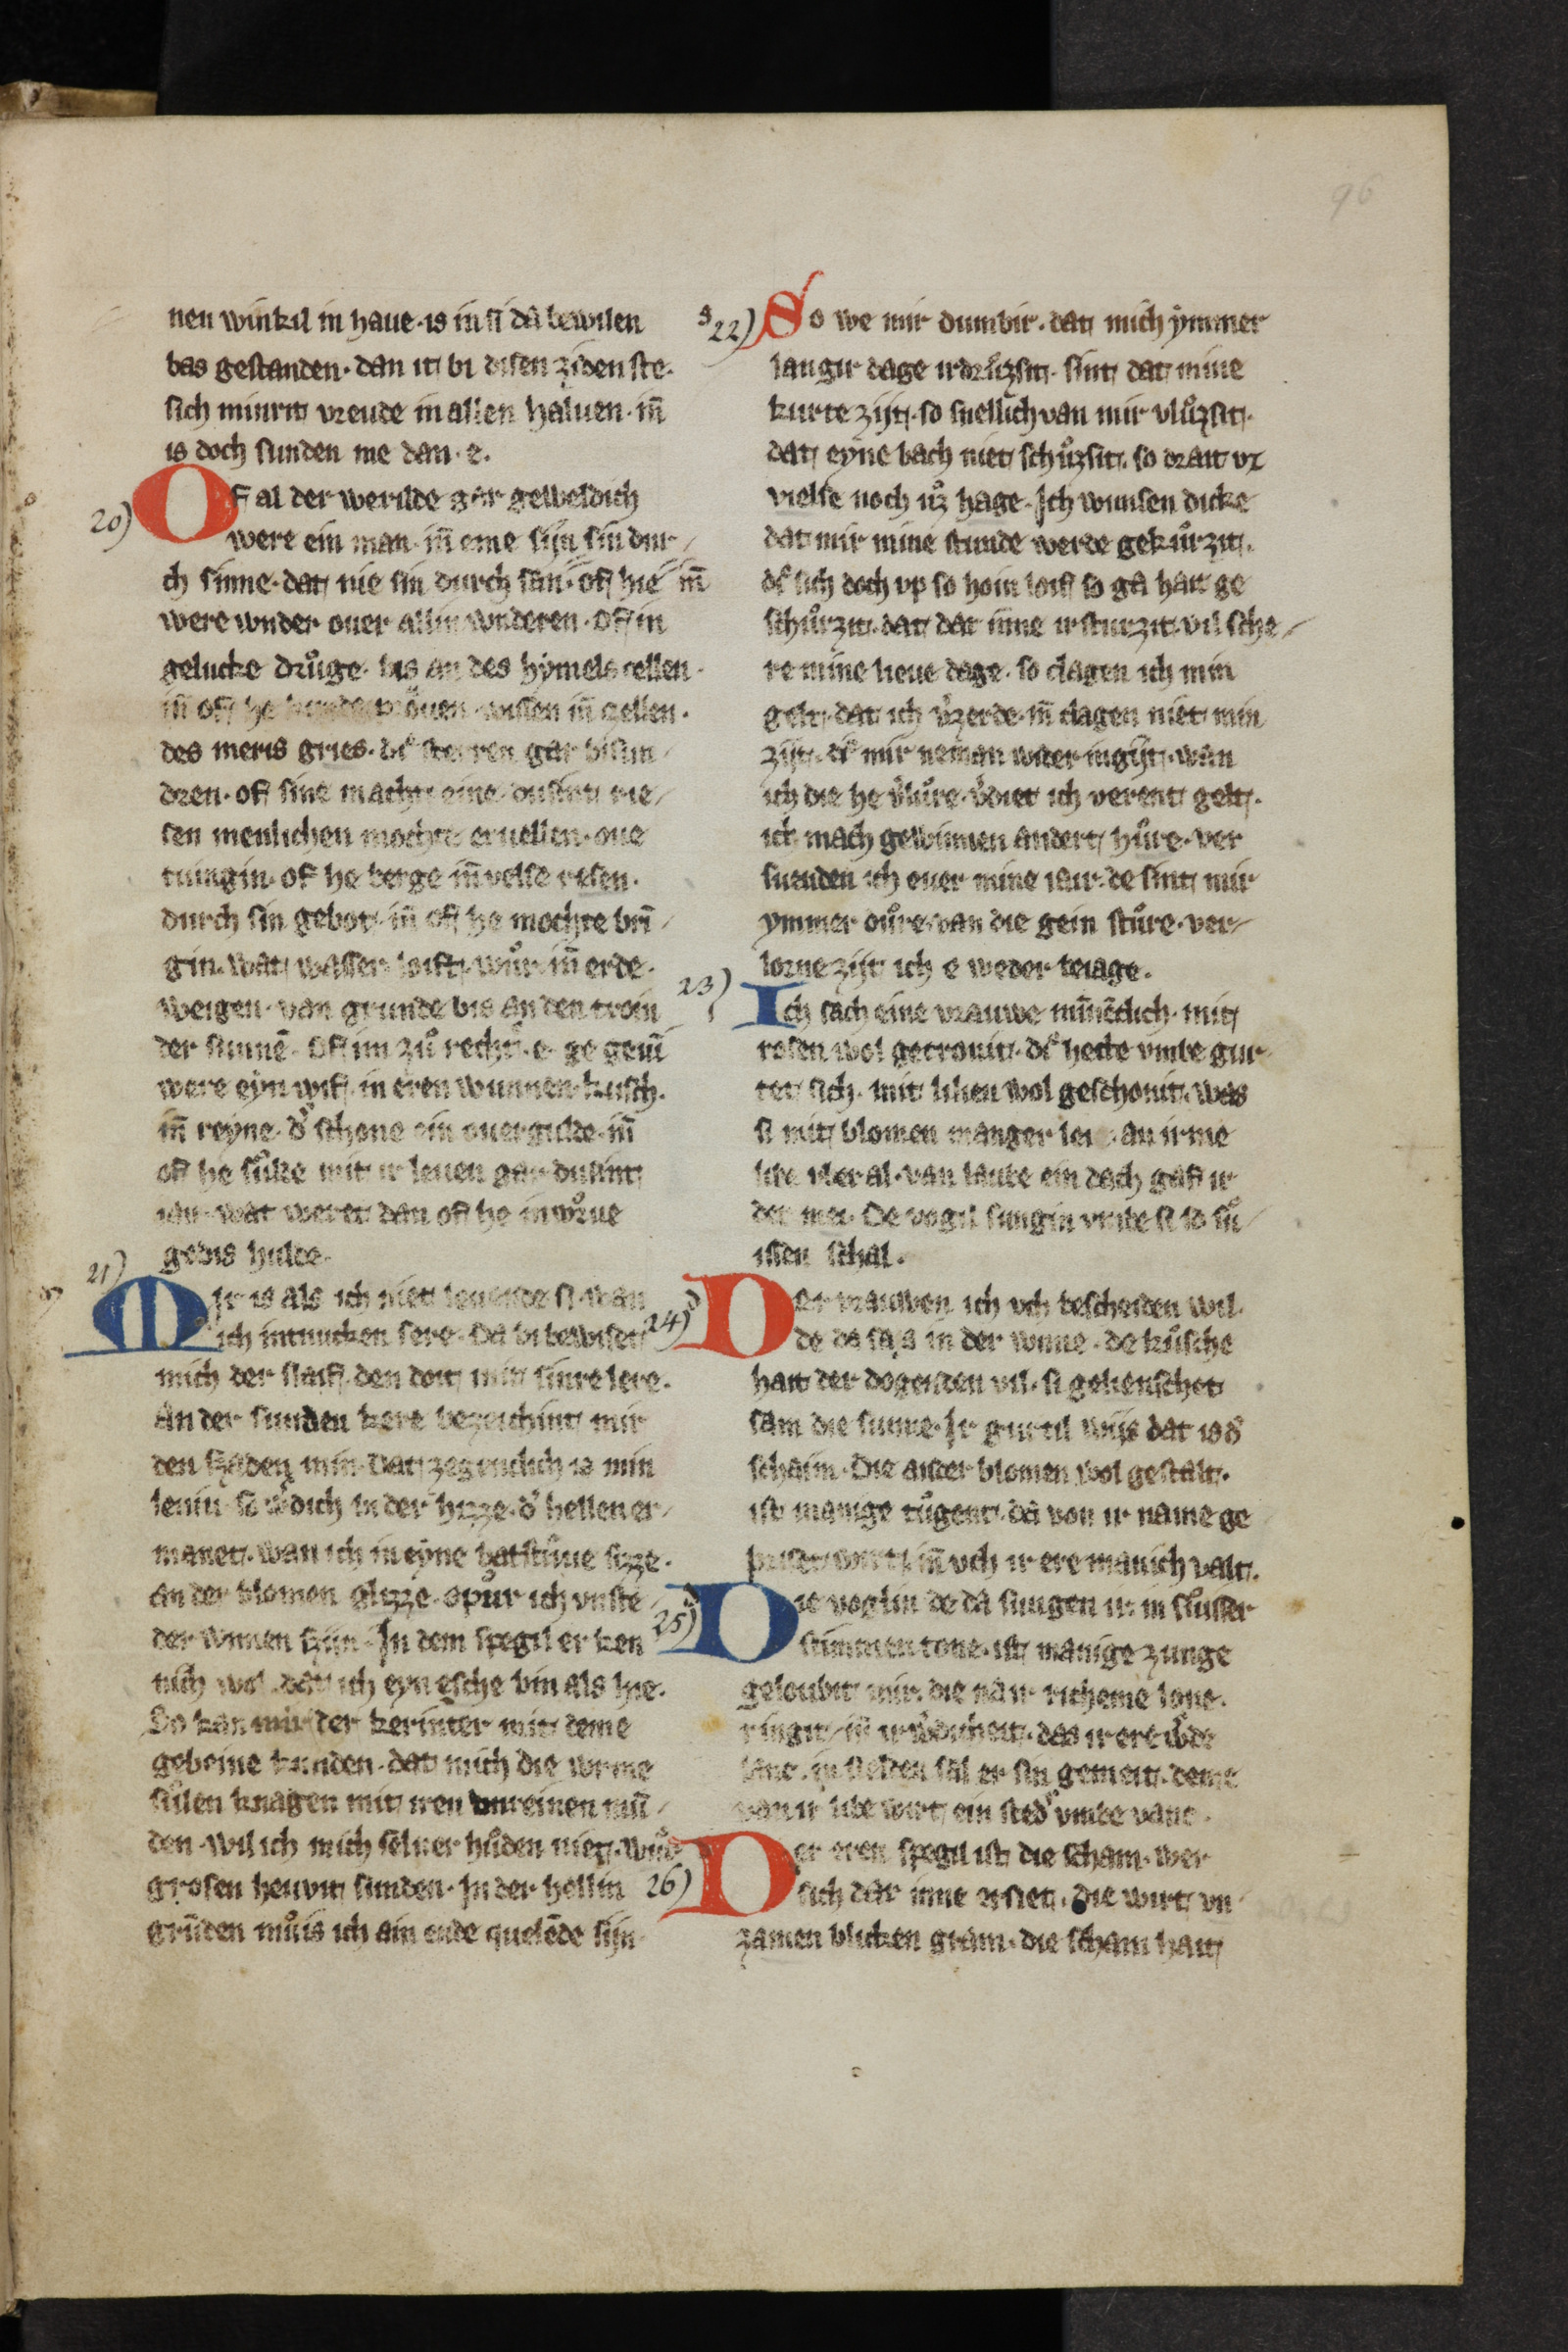 96
nen winkil in haue · is in si dā bewilen
bas gestanden · dan it bi disen ziden ste ·
sich minrit vreude in allen haluen · iñ
is doch sunden me dan · e ·
20) Of al der werilde gar geweldich
were ein man · iñ eme sijn sin dur
ch sinne · dat nie sin durch san · of hie iñ
were wnder ouer allin wnderen · of in
gelucke druͦge · bis an des hymels cellen ·
iñ of he wissen iñ cellen ·
des meris gries · gar bisun
dren · of sine macht eine dusint rie
sen menlichen mochte eruellen · one
tuingin · of he berge iñ velse resen ·
durch sin gebot · iñ of he mochte brī
gin · wat wasser loift · wuͦr iñ erde ·
weigen · van grunde bis an den troin
der sunnē · of im zuͦ recht · e · ge geuī
were eyn wif · in eren wunnen · kusch ·
iñ reyne · d' schone ein ouergulde · iñ
of he sulde mit ir leuen gar dusint
iair · wat weret dan of he inwͦrue
godis hulde ·
21) Mir is als ich niet leuende si · wan
ich intnucken sere · Dā bi bewiset
mich der slaif · den doit mit sinre lere ·
An der sunden kere bezeichint mir
den schaden min · Dat zegenclich is min
leuin · so wͦdich in der hizze · d' hellen er
manet · wan ich in eyne batstuue sizze ·
an der blomen glizze · spuͦr ich vnste
der wnnen schin · In dem spegil er ken
nich wol · dat ich eyn esche bin als hie ·
So kan mir der kerinter mit deme
gebeine kunden · dat mich die wrme
sulen knagen mit iren vnreinen mū
den · wil ich mich seluer huͦden niet · vuͦr
grosen heuvit sunden · In der hellin
grūden muͦis ich ain ende quelēde sijn
22) So we mir dumbir · dat mich ymmer
langir dage irdruͦzsit · sint dat mine
kurte zijt · so snellich van mir vluͦzsit ·
dat eyne bach niet schuͦzsit · so drait vz
vielse noch uͦz hage · Ich wunsen dicke
dat mir mine stunde werde gekuͦrzit ·
d' sich doch vp so hoin loif so gā hait ge
schuͦrzit · dat dat mine irsturzit · vil sche
re mine lieue dage · so clagen ich min
gelt · dat ich v'zerde · iñ clagen niet min
zijt · d' mir neman wider ingijt · wan
ich die he v'luͦre · v'duet ich verent gelt ·
ich mach gewinnen andert huͦre · ver
suenden ich ouer mine iair · de sint mir
ymmer duͦre · van die gein stuͦre · ver
lorne zijt ich e weder beiage ·
23) Ich sach eine vrauwe miñēclich · mit
rosen wol gecronit · d' hecte vmbe gur
tet sich · mit lilien wol geschonit · was
si mit blomen manger lei · an irme
liue vber al · van laube ein dach gaf ir
der mei · De vogil sungin vmbe si so suͦ
issen schal ·
24) Der vrauwen ich vch bescheiden wil ·
de da sas in der wnne · de kuͦsche
hait der dogenden vil · si gelienschet
sam die sunne · Ir gurtil wijs dat is d'
schaim · Die ander blomen wol gestalt ·
ist manige tuͦgent · dā von ir name ge
priset wirt · iñ vch ir ere manich valt ·
25) Die voglin de dā singen ir in suͦsser
stimmen tone · ist manige zunge
geloubit mir · die nā ir richeme lone ·
ringit · iñ ir wͦdicheit · das ir ere wͦde
lanc · in selden sal er sin gemeit · deme
van ir libe wirt ein sted' vmbe vanc ·
26) Der eren spegil ist die scham · wer
sich dar inne ersiet · Die wirt vn
zamen blicken gram · die scham hait